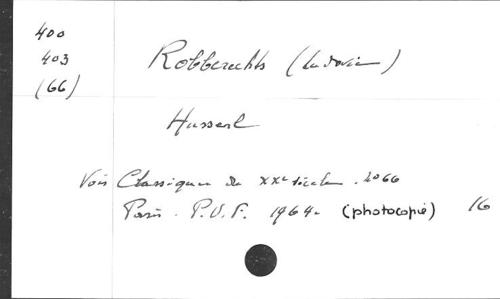 400
403
(66)
Robberechts (Ludovic)
Husserl
Voir Classiques du XXe siècle. no 66
Paris. P.U.F. 1964. (photocopié) 16